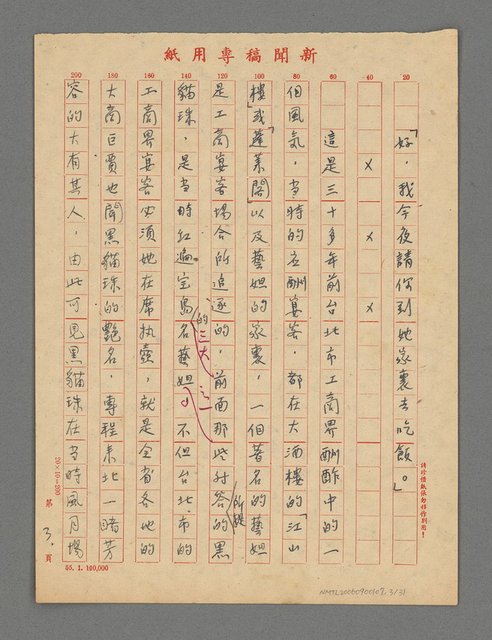 新聞稿專用紙
20
40
60
80
100
120
140
160
180
200
「好，我今夜請你到她家裏去吃飯。」
× × ×
這是三十多年前台北市工商界酬酢中的一
個風氣，當時的應酬宴客，都在大酒樓的「江山
樓」或「蓬萊閣」以及藝妲的家裏，一個著名的藝妲
是工商宴客場合所追逐的，前面那些對答所提的黑
貓珠，是當時紅遍寶島的三大名藝妲之一，不但台北市的
工商界宴客必須她在席執壺，就是全省各地的
大商巨賈也聞黑貓珠的艷名，專程來北一睹芳
容的大有其人，由此可見黑貓珠在當時風月場
請珍惜紙張勿移作別用！
20×10=200
第 3. 頁
65.1.100,000
NMTL20060900107, 3/31